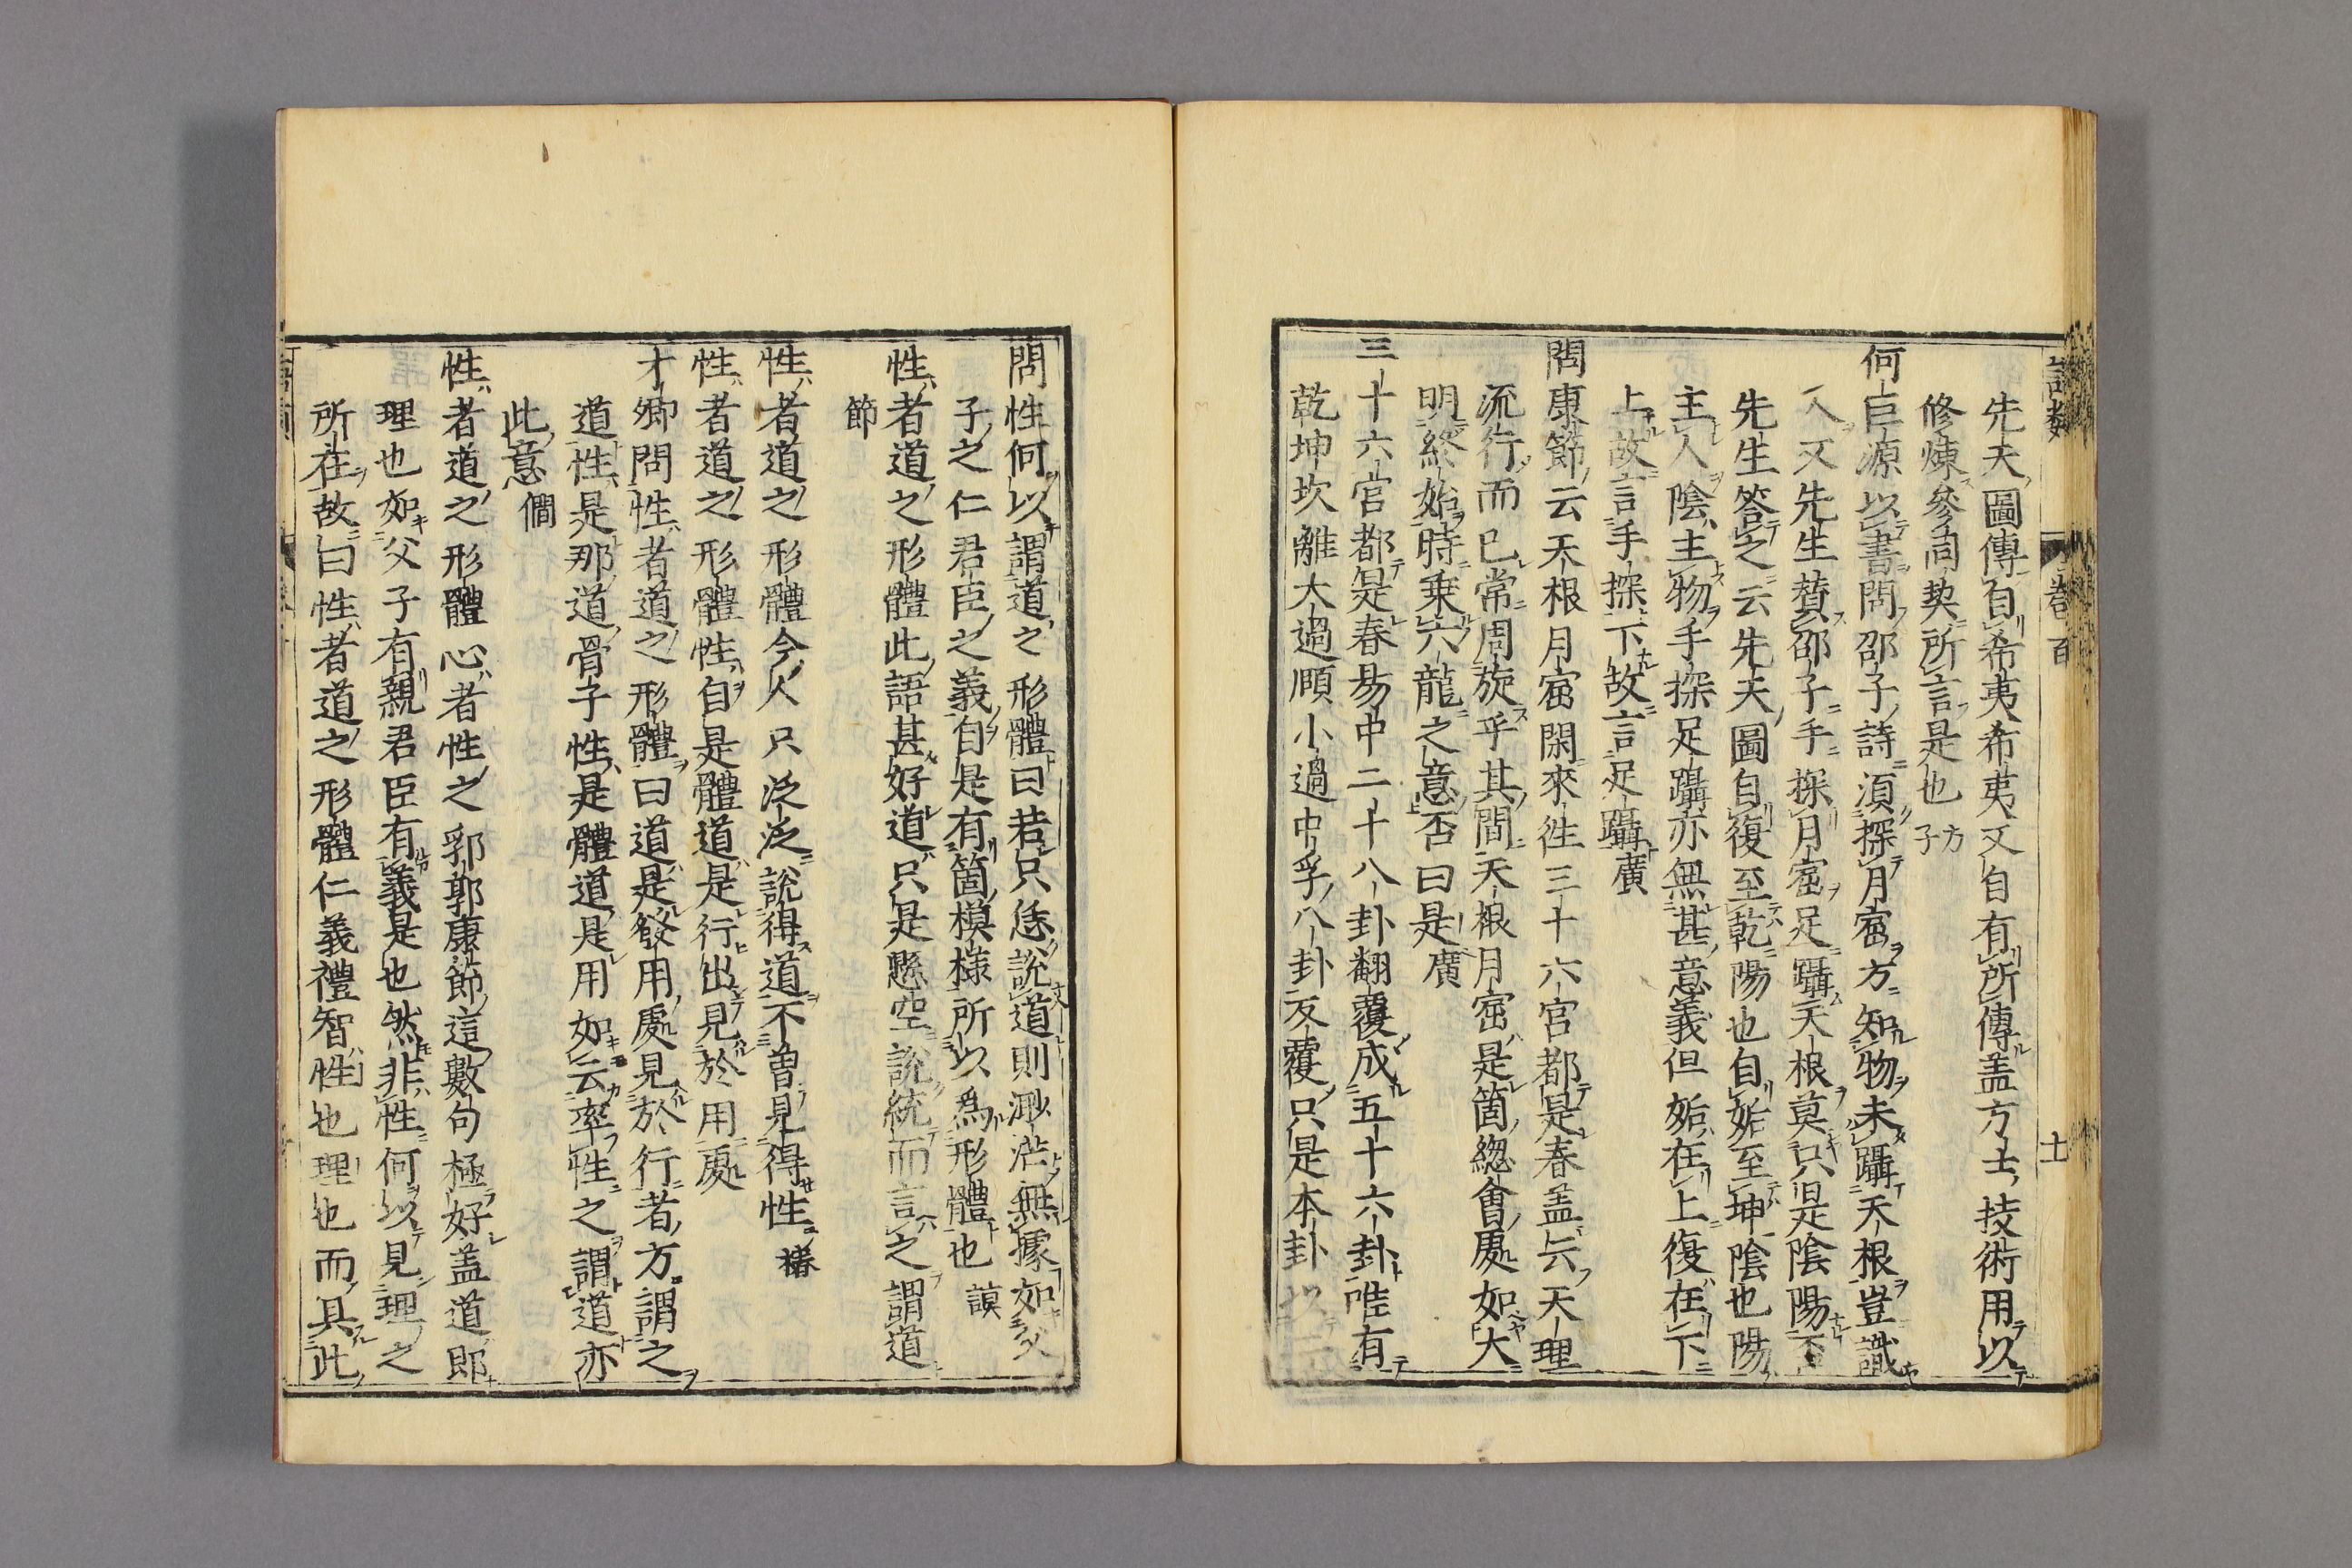 語類 卷百 十一
先天圖傳自希夷希夷又自有所傳盖方士技術用以
修煉參同契所言是也方子
何巨源以書問邵子詩須探月窟方知物未躡天根豈識
人又先生贊邵子手探月窟足躡天根莫只是陰陽否
先生答之云先天圖自復至乾陽也自姤至坤陰也陽
主人陰主物手探足躡亦無甚意義但姤在上復在下
上故言手探下故言足躡廣
問康節云天根月窟閑來徃三十六宮都是春盖云天理
流行而已常周旋乎其間天根月窟是箇緫會處如大
明終始時乗六龍之意否曰是廣
三十六宮都是春易中二十八卦翻覆成五十六卦唯有
乾坤坎離大過頤小過中孚八卦反覆只是本卦以
問性何以謂道之形體曰若只恁說道則渺茫無據如父
子之仁君臣之義自是有箇模様所以為形體也謨
性者道之形體此語甚好道只是懸空說統而言之謂道
節
性者道之形體今人只泛泛說得道不曽見得性椿
性者道之形體性自是體道是行出見於用處
才卿問性者道之形體曰道是發用處見於行者方謂之
道性是那道骨子性是體道是用如云率性之謂道亦
此意僩
性者道之形體心者性之郛郭康節這數句極好盖道即
理也如父子有親君臣有義是也然非性何以見理之
所在故曰性者道之形體仁義禮智性也理也而具此